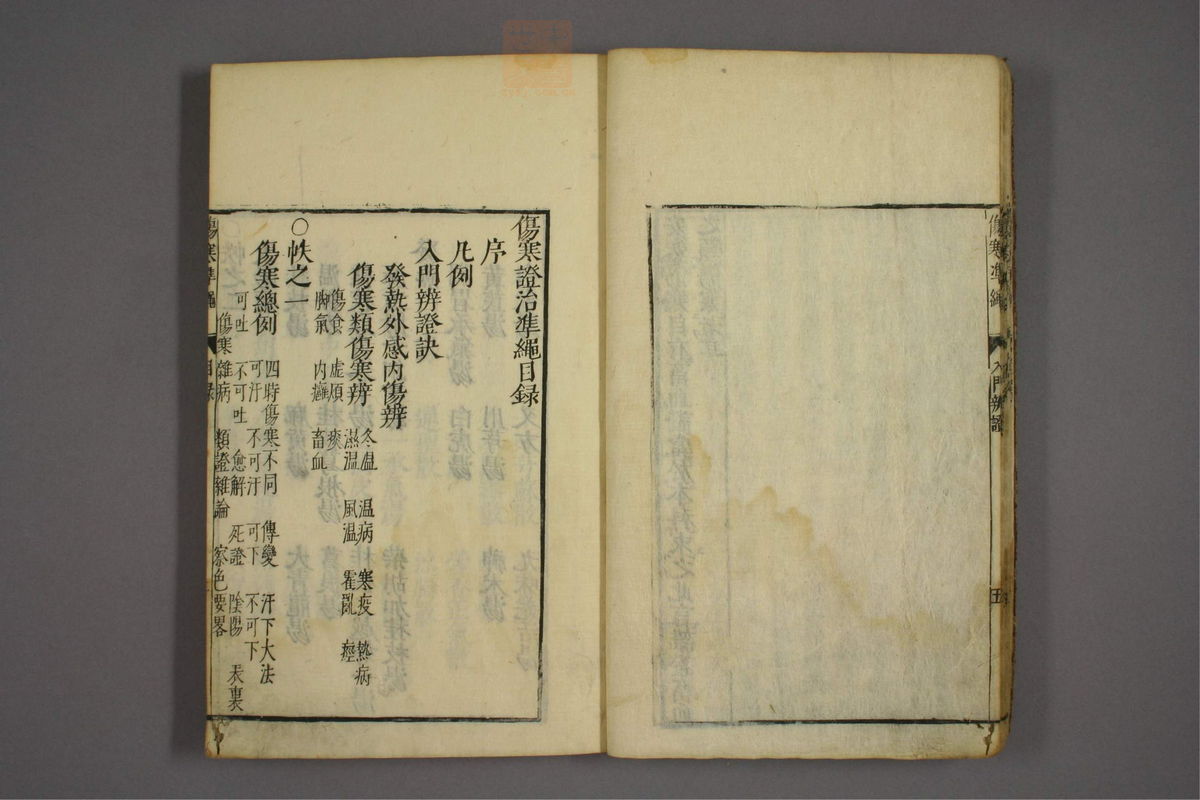 傷寒準繩
入門辨證
五
傷寒證治準繩目録
序
凡例
入門辨證訣
發熱外感内傷辨
傷寒類傷寒辨
冬温 温病 寒疫 熱病
濕温 風温 霍亂 痙
傷食 虚煩 痰
脚氣 内癰 畜血
○帙之一
傷寒總例
四時傷寒不同 傳變 汗下大法
可汗 不可汗 可下 不可下
可吐 不可吐 愈解 死證 陰陽 表裏
傷寒雜病 類證雜論 察色要畧
傷寒準繩
目録